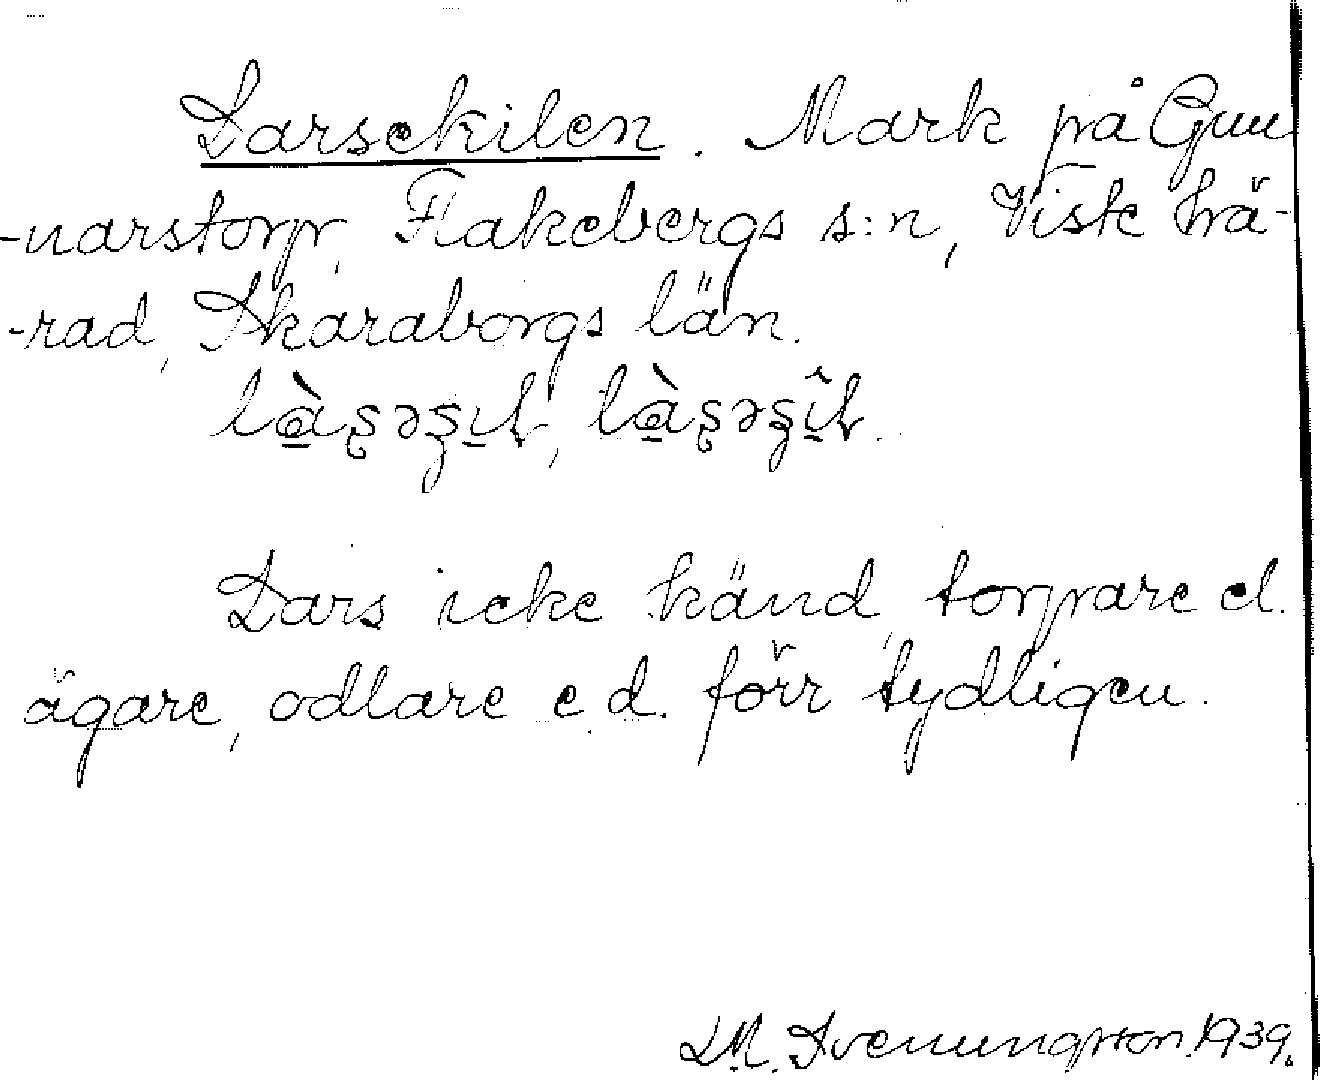 Larsekilen. Mark på Gun
-narstorp, Flakebergs s:n, Viste hä-
-rad, Skaraborgs län.
Lars icke känd, torpare el.
ägare, odlare e.d. förr tydligen.
L.M. Svenungsson. 1939.